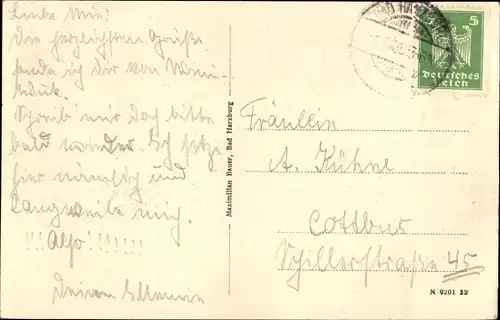 Liebe Mim!
Die herzlichsten Grüße
sende ich Dir von
Schreib' mir doch bitte
bald wieder. Ich sitze
hier nämlich und
langweile mich.
!!! Also!!!!!!!
Deine
Maximilian Bauer, Bad Harzburg
BAD HARZBURG
5
Deutsches
Reich
Fräulein
A. Kühne
Cottbus
Schillerstraße 45
N 9201 22